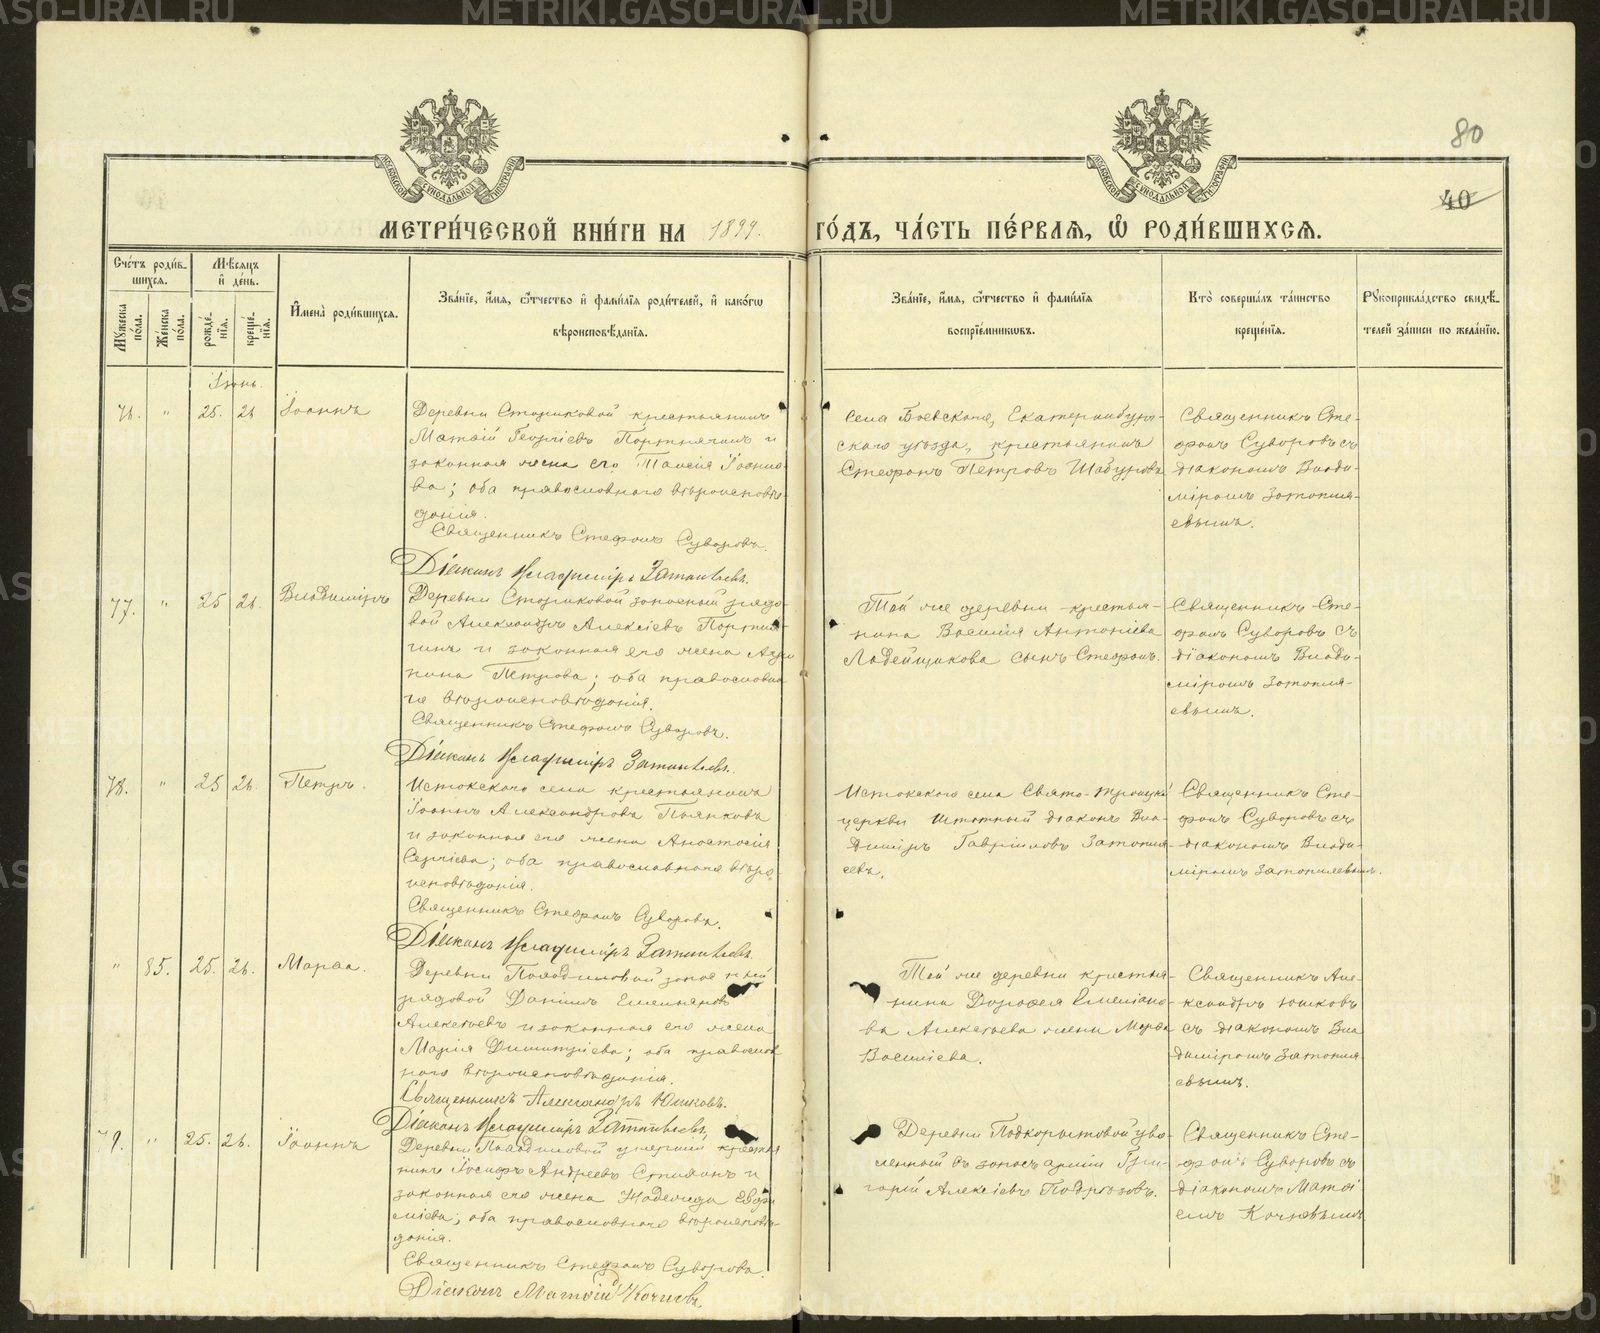 METRIKI.GASO-URAL.RU
80
40
МОСКОВСКОЙ СѴНОДАЛЬНОЙ ТИПОГРАФІИ
МЕТРИ́ЧЕСКОЙ КНИ́ГИ НА 1899. ГО́ДЪ, ЧА́СТЬ ПЕ́РВАЯ, Ѡ РОДИ́ВШИХСЯ.
Сче́тъ роди́в-
шихся.
Му́жеска по́ла.
Же́нска по́ла.
Мѣ́сяцъ
и҆ де́нь.
рожде́-
нїя.
креще́-
нїя.
И҆мена̀ роди́вшихся.
Зва́нїе, и҆́мя, ѻ҆́тчество и҆ фами́лїя роди́телей, и҆ како́гѡ
вѣроисповѣ́данїя.
Зва́нїе, и҆́мя, ѻ҆́тчество и҆ фами́лїя
воспрїе́мникѡвъ.
Кто̀ соверша́лъ та́инство
креще́нїя.
Рꙋкоприкла́дство свидѣ́-
телей за́писи по жела́нїю.
Іюнь.
76. " 25. 26 Іоаннъ
Деревни Стариковой крестьянинъ
Матѳій Георгіевъ Портнягинъ и
законная жена его Таисія Іоанно-
ва; оба православнаго вѣроисповѣ-
данія.
Священникъ Стефанъ Суворовъ.
Діаконъ Владиміръ Затопляевъ.
села Боевскаго, Екатеринбург-
скаго уѣзда, крестьянинъ
Стефанъ Петровъ Шабуровъ
Священникъ Сте-
фанъ Суворовъ съ
діакономъ Влади-
міромъ Затопля-
евымъ.
77. " 25 26. Владиміръ
Деревни Стариковой запасный рядо-
вой Александръ Алексіевъ Портня-
гинъ и законная его жена
Петрова; оба православна
го вѣроисповѣданія.
Священникъ Стефанъ Суворовъ.
Діаконъ Владиміръ Затопляевъ.
Той же деревни крестья-
нина Василія Антоніева
Ладейщикова сынъ Стефанъ.
Священникъ Сте-
фанъ Суворовъ съ
діакономъ Влади-
міромъ Затопля-
евымъ.
78. " 25 26. Петръ.
Истокскаго села крестьянинъ
Іоаннъ Александровъ Пьянковъ
и законная его жена Анастасія
Сергіева; оба православнаго вѣро-
исповѣданія.
Священникъ Стефанъ Суворовъ.
Діаконъ Владиміръ Затопляевъ.
Истокскаго села Свято-Троицкой
церкви штатный діаконъ Вла-
диміръ Гавріиловъ Затопля-
евъ.
Священникъ Сте-
фанъ Суворовъ съ
діакономъ Влади-
міромъ Затопляевымъ.
" 85. 25. 26. Марѳа.
Деревни запасный
рядовой Даніилъ Емельяновъ
Алексѣевъ и законная его жена
Марія Димитріева; оба православ
наго вѣроисповѣданія.
Священникъ Александръ Юшковъ.
Діаконъ Владиміръ Затопляевъ.
Той же деревни крестья-
нина Дороѳея Емеліано-
ва Алексѣева жена Марѳа
Василіева.
Священникъ Але-
ксандръ Юшковъ
съ діакономъ Вла
диміромъ Затопля
евымъ.
79. " 25. 26. Іоаннъ
Деревни умершій крестья
нинъ Іосифъ Андреевъ и
законная его жена Надежда Евфи-
міева; оба православнаго вѣроисповѣ-
данія.
Священникъ Стефанъ Суворовъ.
Діаконъ Матѳій Кочневъ.
Деревни Подкорытовой уво-
ленный въ запасъ арміи Гри-
горій Алексіевъ
Священникъ Сте-
фанъ Суворовъ съ
діакономъ Матѳі
емъ Кочневымъ